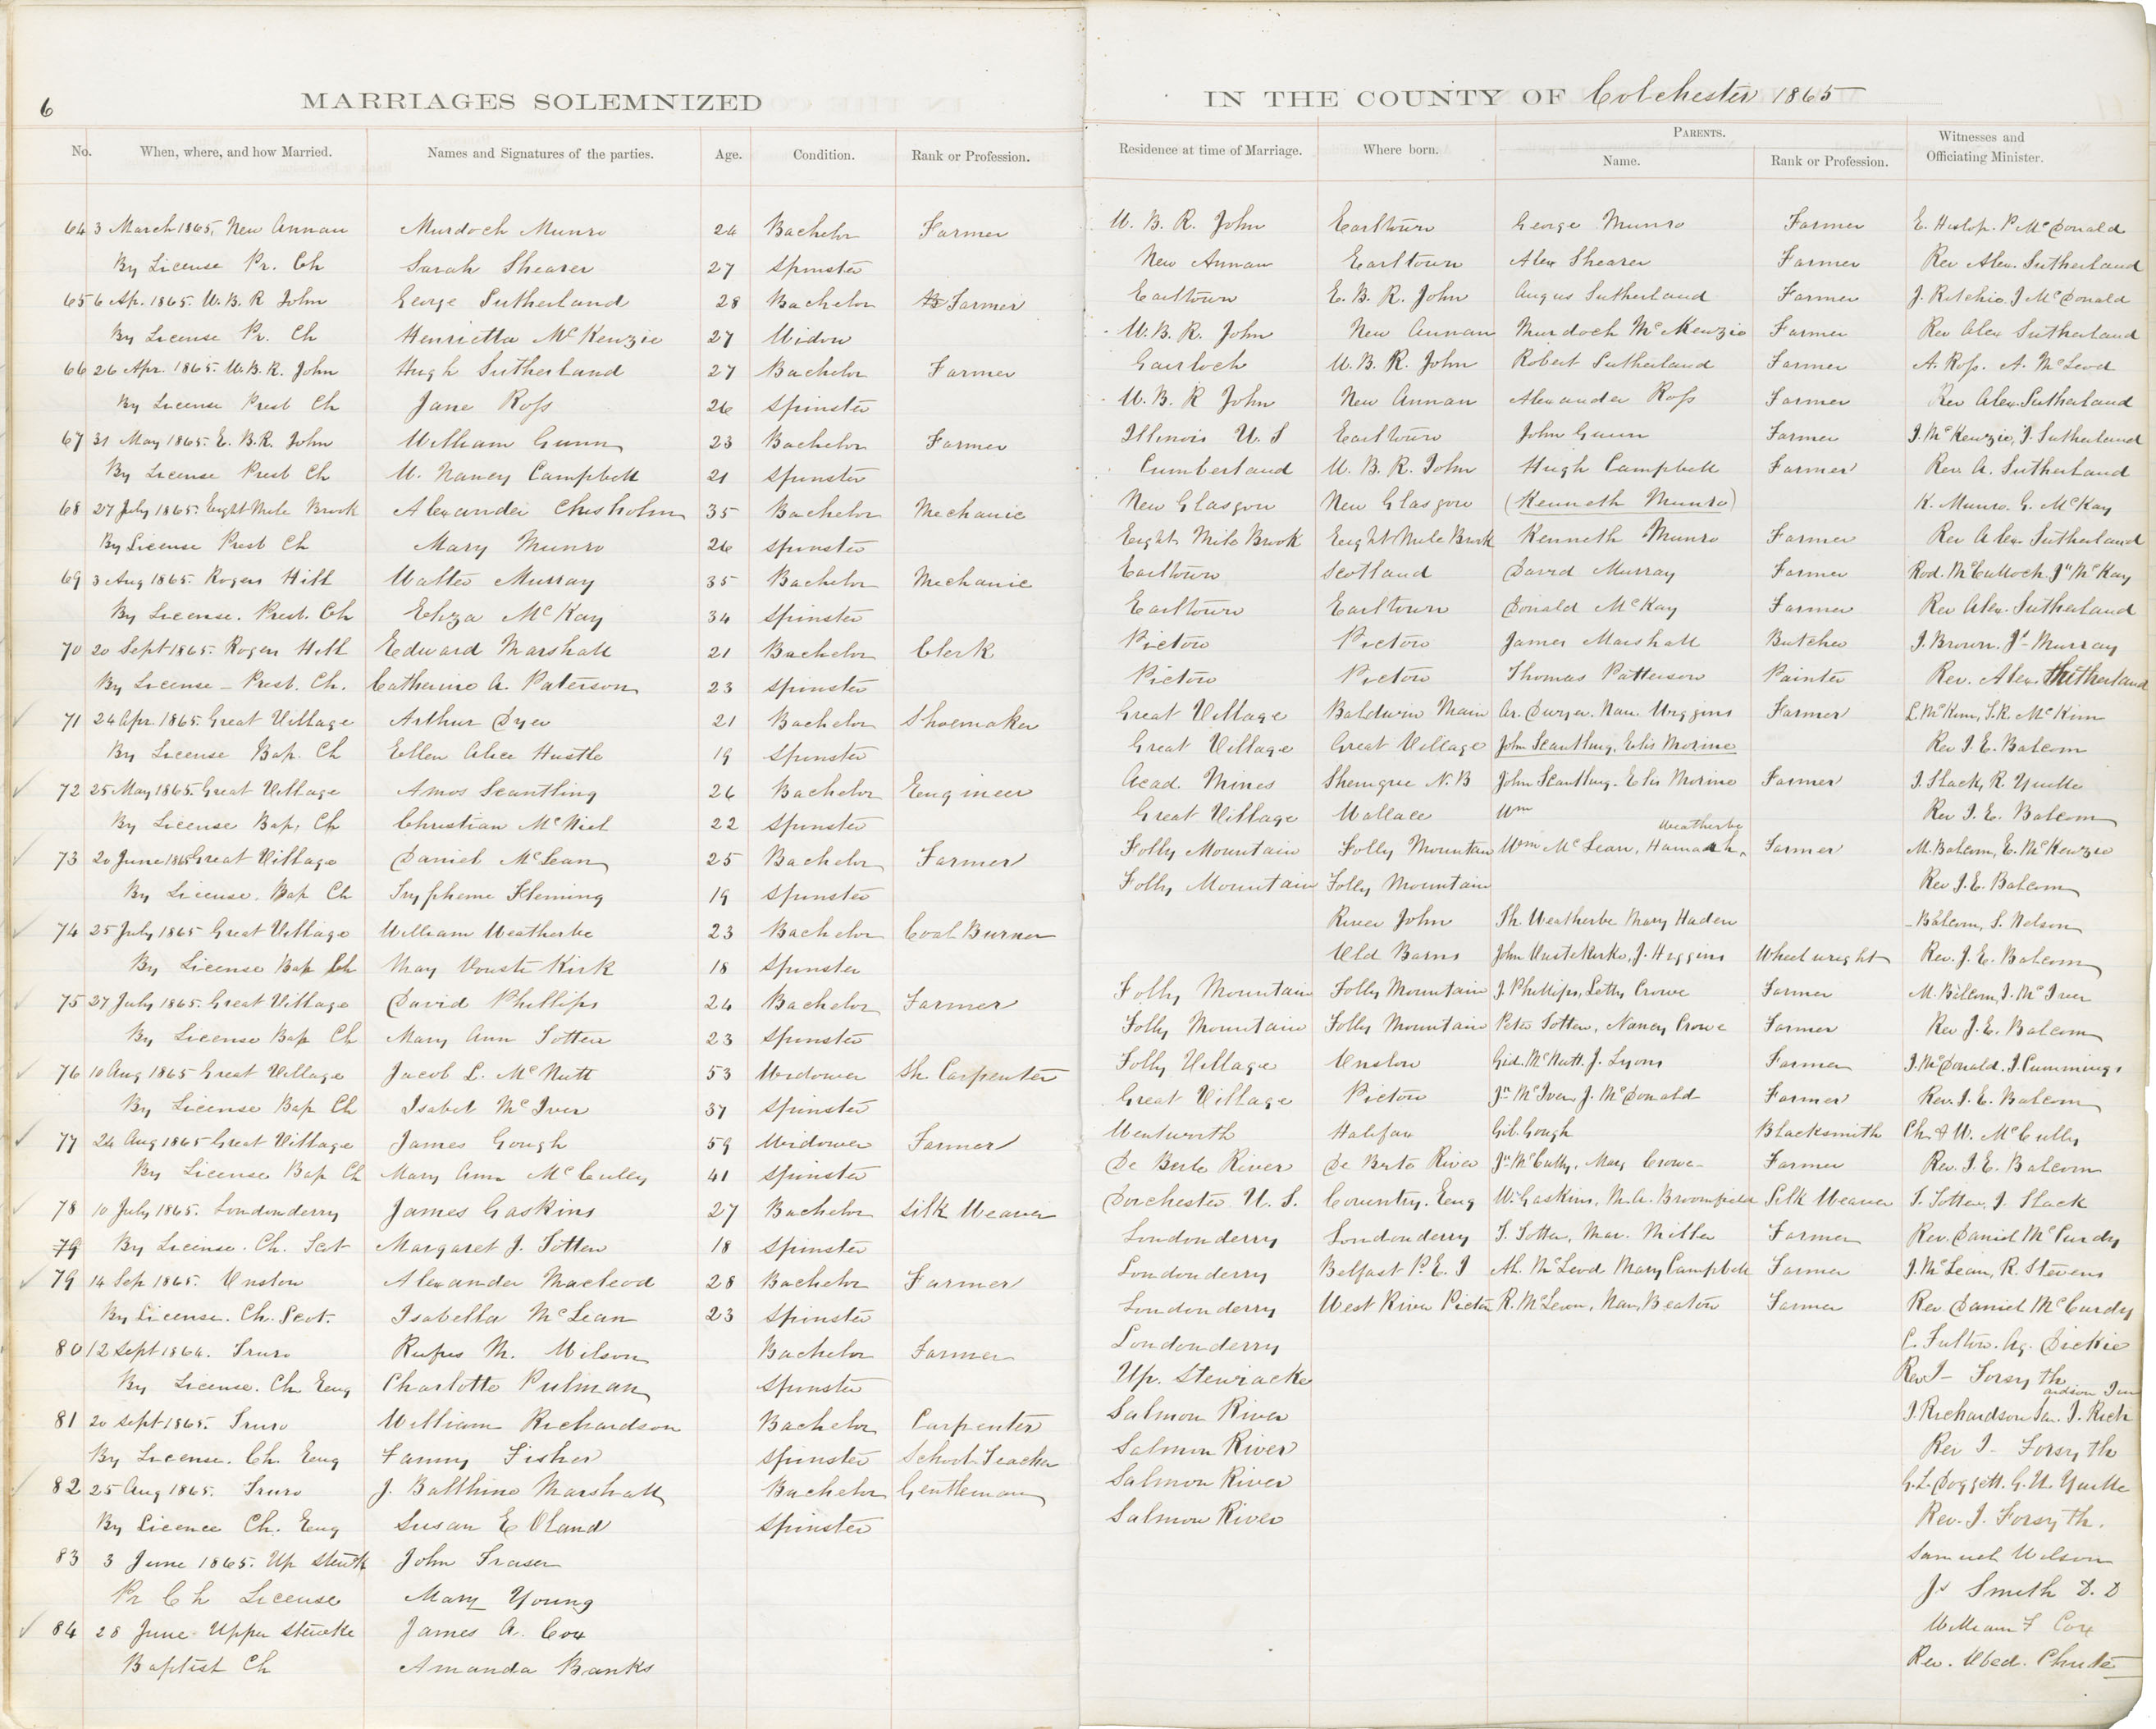 6
MARRIAGES SOLEMNIZED IN THE COUNTY OF Colchester 1865
No. When, where, and how Married. Names and Signatures of the parties. Age. Condition. Rank or Profession. Residence at time of Marriage. Where born. PARENTS. Name. Rank or Profession. Witnesses and Officiating Minister.
64 3 March 1865, New Annan Murdoch Munro 24 Bachelor Farmer W. B. R. John Earltown George Munro Farmer E. Hislop. P McDonald
By License Pr. Ch Sarah Shearer 27 Spinster New Annan Earltown Alex Shearer Farmer Rev Alex. Sutherland
65 6 Ap. 1865. W. B. R John George Sutherland 28 Bachelor Farmer Earltown E. B. R. John Angus Sutherland Farmer J. Ritchie. J McDonald
By License Pr. Ch Henrietta McKenzie 27 Widow W. B. R. John New Annan Murdoch McKenzie Farmer Rev Alex Sutherland
66 26 Apr. 1865. W. B. R. John Hugh Sutherland 27 Bachelor Farmer Gairloch W. B. R. John Robert Sutherland Farmer A. Ross. A. McLeod
By License Presb Ch Jane Ross 26 Spinster W. B. R John New Annan Alexander Ross Farmer Rev Alex. Sutherland
67 31 May 1865. E. B. R. John William Gunn 23 Bachelor Farmer Illinois U. S Earltown John Gunn Farmer J. McKenzie, J. Sutherland
By License Presb Ch W. Nancy Campbell 21 Spinster Cumberland W. B. R. John Hugh Campbell Farmer Rev A. Sutherland
68 27 July 1865. Eight Mile Brook Alexander Chisholm 35 Bachelor Mechanic New Glasgow New Glasgow (Kenneth Munro) K. Munro. G. McKay
By License Presb Ch Mary Munro 26 Spinster Eight Mile Brook Eight Mile Brook Kenneth Munro Farmer Rev Alex Sutherland
69 3 Aug 1865. Rogers Hill Walter Murray 35 Bachelor Mechanic Earltown Scotland David Murray Farmer Rod. McCulloch, Jn McKay
By License. Presb. Ch Eliza McKay 34 Spinster Earltown Earltown Donald McKay Farmer Rev Alex. Sutherland
70 20 Sept 1865. Rogers Hill Edward Marshall 21 Bachelor Clerk Pictou Pictou James Marshall Butcher J. Brown. Js Murray
By License - Presb. Ch. Catherine A. Paterson 23 Spinster Pictou Pictou Thomas Patterson Painter Rev. Alex. Sutherland
71 24 Apr. 1865. Great Village Arthur Dyer 21 Bachelor Shoemaker Great Village Baldwin Main Ar. Dwyer. Nan. Wiggins Farmer L McKim, S. R. McKim
By License Bap. Ch Ellen Alice Hustle 19 Spinster Great Village Great Village John Scantling, Elis Morine Rev J. E. Balcom
72 25 May 1865. Great Village Amos Scantling 26 Bachelor Engineer Acad. Mines Shemgue N. B John Scantling. Elis Morine Farmer J. Slack, R. Yuille
By License Bap. Ch Christian McNiel 22 Spinster Great Village Wallace Wm Rev J. E. Balcom
73 20 June 1865 Great Village Daniel McLean 25 Bachelor Farmer Folly Mountain Folly Mountain Wm McLean, Hannah Weatherbe Farmer M. Balcom, E. McKenzie
By License. Bap Ch Tryphene Fleming 19 Spinster Folly Mountain Folly Mountain Rev J. E. Balcom
74 25 July 1865 Great Village William Weatherbe 23 Bachelor Coal Burner River John Th. Weatherbe Mary Haden - Balcom, S. Nelson
By License Bap Ch May Vouste Kirk 18 Spinster Old Barns John Vuste Kirke, J. Higgins Wheelwright Rev. J. E. Balcom
75 27 July 1865. Great Village David Phillips 24 Bachelor Farmer Folly Mountain Folly Mountain J. Phillips, Letty Crowe Farmer M. Balcom, J. McIver
By License Bap Ch Mary Ann Totten 23 Spinster Folly Mountain Folly Mountain Peter Totten, Nancy Crowe Farmer Rev J. E. Balcom
76 10 Aug 1865 Great Village Jacob L. McNutt 53 Widower Sh. Carpenter Folly Village Onslow Gid. McNutt. J. Lyons Farmer J. McDonald. J. Cummings
By License Bap Ch Isabel McIver 37 Spinster Great Village Pictou Jn McIver, J. McDonald Farmer Rev. J. E. Balcom
77 24 Aug 1865 Great Village James Gough 59 Widower Farmer Wentworth Halifax Gib. Gough Blacksmith Ch. & W. McCully
By License Bap Ch Mary Ann McCulley 41 Spinster De Berte River De Berte River Jn McCully, Mary Crowe Farmer Rev. J. E. Balcom
78 10 July 1865. Londonderry James Gaskins 27 Bachelor Silk Weaver Dorchester U. S. Coventry. Eng W. Gaskins, M. A. Broomfield Silk Weaver T. Totten, J. Slack
79 By License. Ch. Scot Margaret J. Totten 18 Spinster Londonderry Londonderry T. Totten, Mar. Miller Farmer Rev. Daniel McCurdy
79 14 Sep 1865. Onslow Alexander Macleod 28 Bachelor Farmer Londonderry Belfast P. E. I Al. McLeod Mary Campbell Farmer J. McLean, R. Stevens
By License. Ch. Scot. Isabella McLean 23 Spinster Londonderry West River Pictou R. McLean, Nan. Beaton Farmer Rev Daniel McCurdy
80 12 Sept 1864. Truro Rufus M. Wilson Bachelor Farmer Londonderry C. Fulton. Ag. Dickie
By License. Ch Eng Charlotte Pulman Spinster Up. Stewiacke Rev J- Forsyth
81 20 Sept 1865. Truro William Richardson Bachelor Carpenter Salmon River J. Richardson Sen. J. Richardson Jun
By License. Ch. Eng Fanny Fisher Spinster School Teacher Salmon River Rev J- Forsyth
82 25 Aug 1865. Truro J. Balthine Marshall Bachelor Gentleman Salmon River G. L. Doggett. G. W. Yuille
By Licence Ch. Eng Susan E Oland Spinster Salmon River Rev. J. Forsyth.
83 3 June 1865. Up Stewk John Fraser Samuel Wilson
Pr Ch License Mary Young Js Smith D. D
84 28 June Upper Stewke James A. Cox William F Cox
Baptist Ch Amanda Banks Rev. Obed. Chute